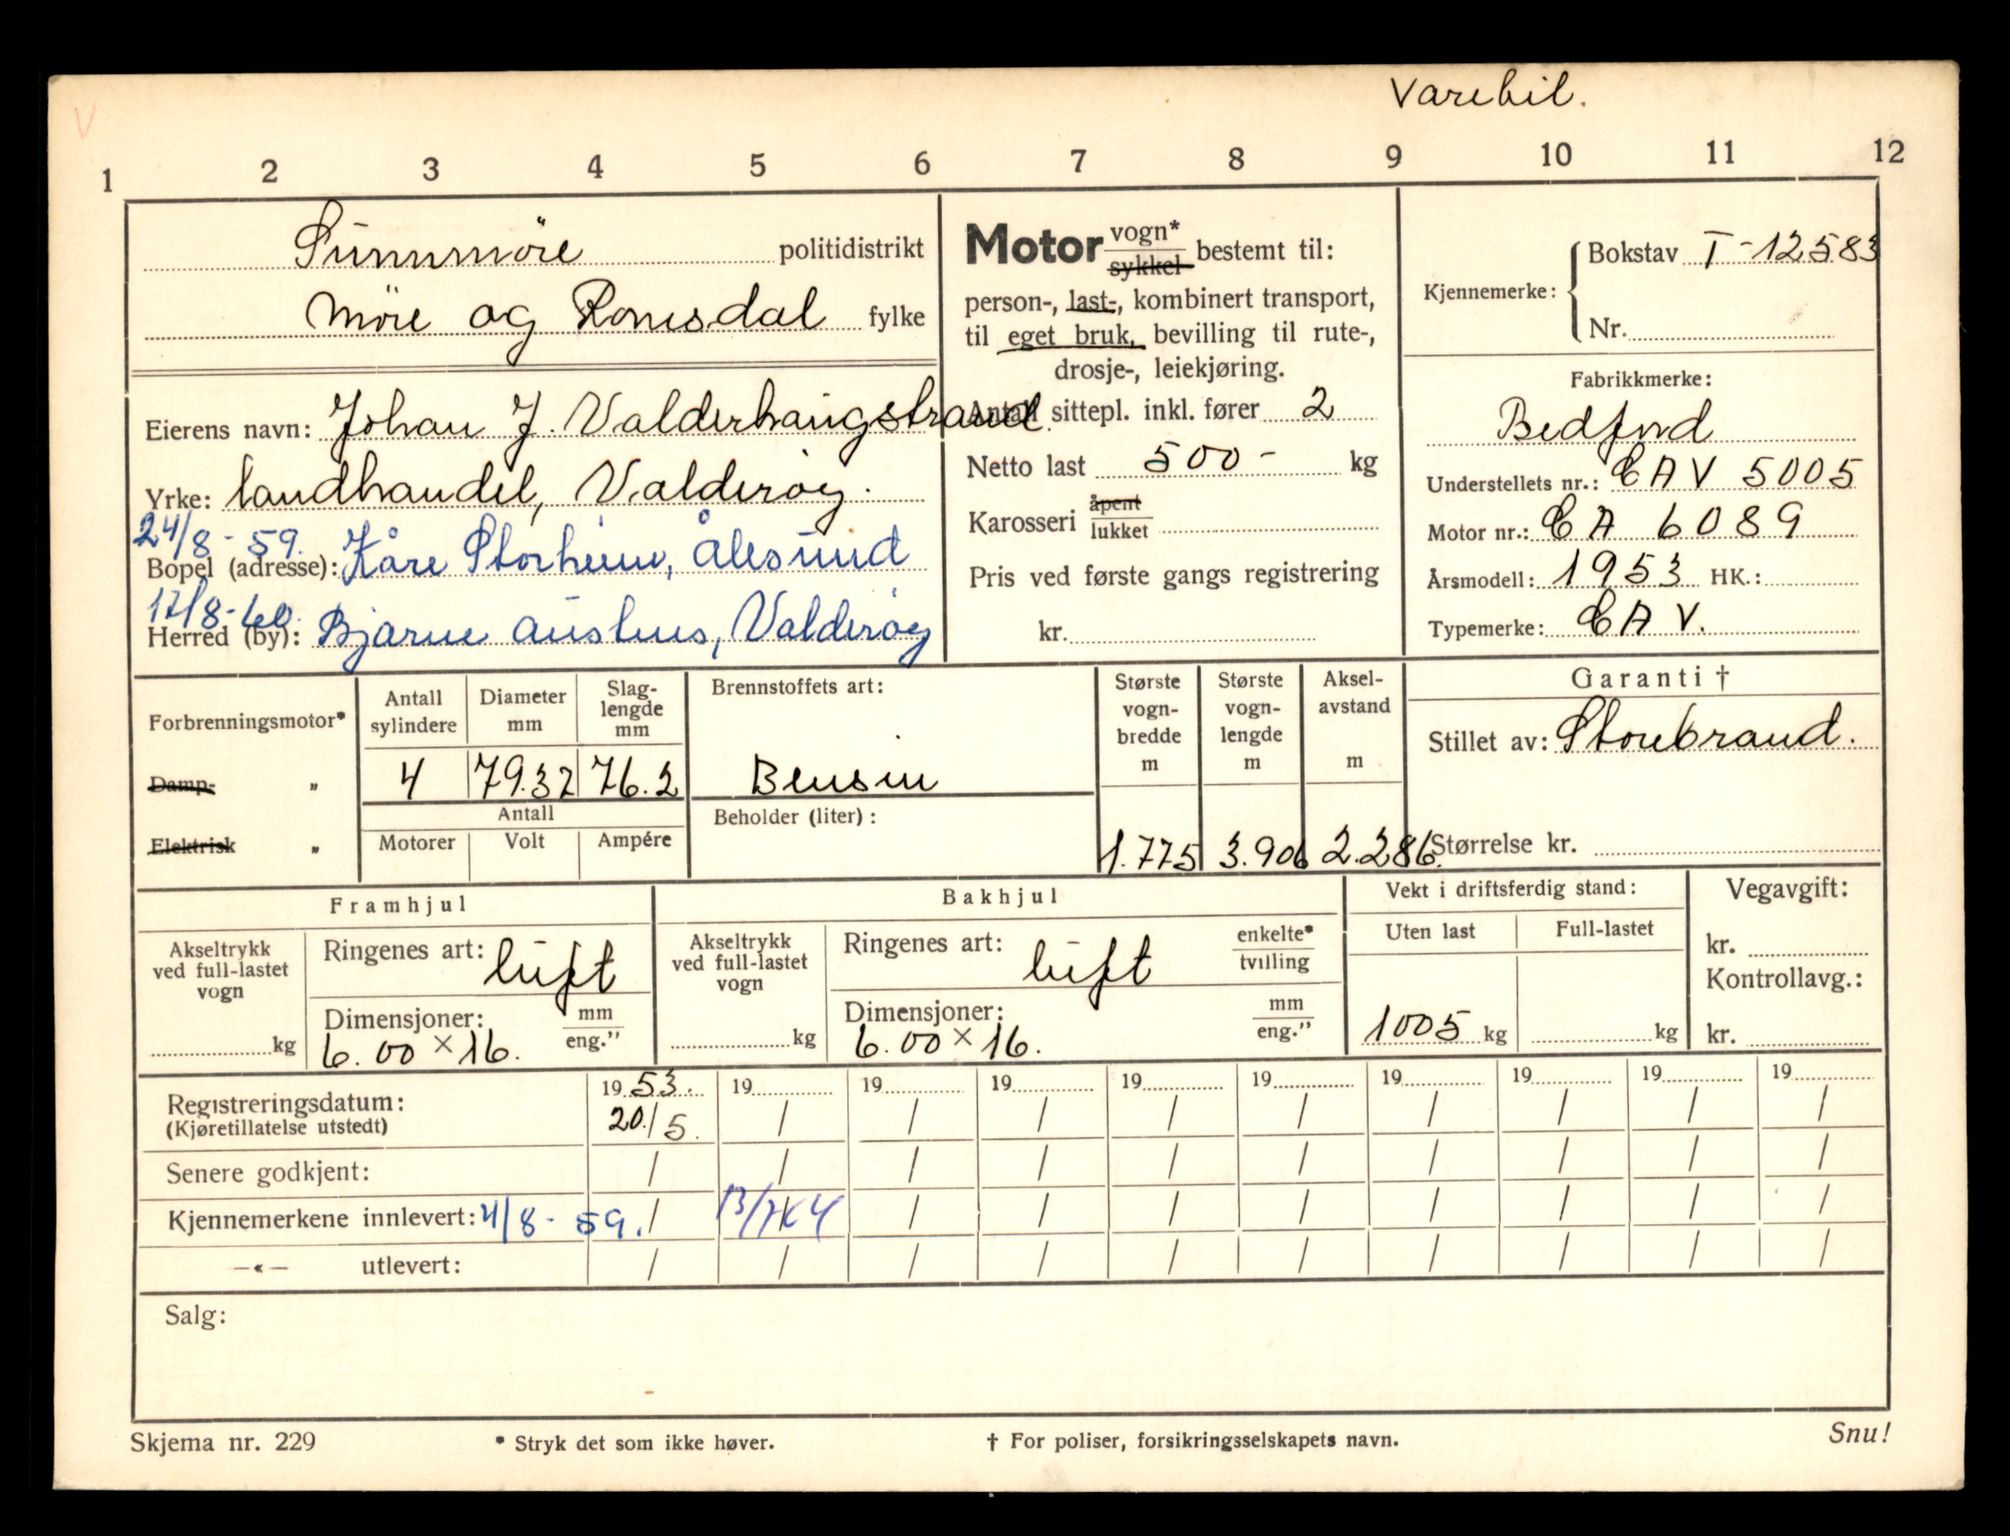 Varebil.
V
1 2 3 4 5 6 7 8 9 10 11 12
Sunnmöre politidistrikt
Möre og Romsdal fylke
Eierens navn: Johan J. Valderhaugstrand
Yrke: landhandel, Valderøy.
24/8-59.
Bopel (adresse): Kåre Storheim, Ålesund
17/8-60.
Herred (by): Bjarne Aushus, Valderøy
Motor vogn*
sykkel bestemt til:
person-, last-, kombinert transport,
til eget bruk, bevilling til rute-,
drosje-, leiekjøring.
Antall sittepl. inkl. fører 2
Netto last 500- kg
Karosseri åpent
lukket
Pris ved første gangs registrering
kr.
Kjennemerke: Bokstav T-12583
Nr.
Fabrikkmerke:
Bedford
Understellets nr.: EAV 5005
Motor nr.: EA 6089
Årsmodell: 1953 HK.:
Typemerke: EAV.
Forbrenningsmotor*
Damp- „
Elektrisk „
Antall sylindere Diameter mm Slaglengde mm
4 79.37 76.2
Antall
Motorer Volt Ampére
Brennstoffets art:
Bensin
Beholder (liter):
Største vognbredde m
1.775
Største vognlengde m
3.906
Akselavstand m
2.286.
Garanti †
Stillet av: Storebrand.
Størrelse kr.
Framhjul
Akseltrykk
ved full-lastet
vogn
kg
Ringenes art: luft
Dimensjoner: mm
6.00 × 16. eng."
Bakhjul
Akseltrykk
ved full-lastet
vogn
kg
Ringenes art: luft enkelte*
tvilling
Dimensjoner: mm
6.00 × 16. eng."
Vekt i driftsferdig stand:
Uten last Full-lastet
1005 kg kg
Vegavgift:
kr.
Kontrollavg.:
kr.
19 53. 19 19 19 19 19 19 19 19 19
Registreringsdatum: 20./5. / / / / / / / / /
(Kjøretillatelse utstedt)
Senere godkjent: / / / / / / / / / /
Kjennemerkene innlevert: 4/8-59. / / / / / / / / /
—«— utlevert: / / / / / / / / / /
Salg:
Skjema nr. 229 * Stryk det som ikke høver. † For poliser, forsikringsselskapets navn. Snu!